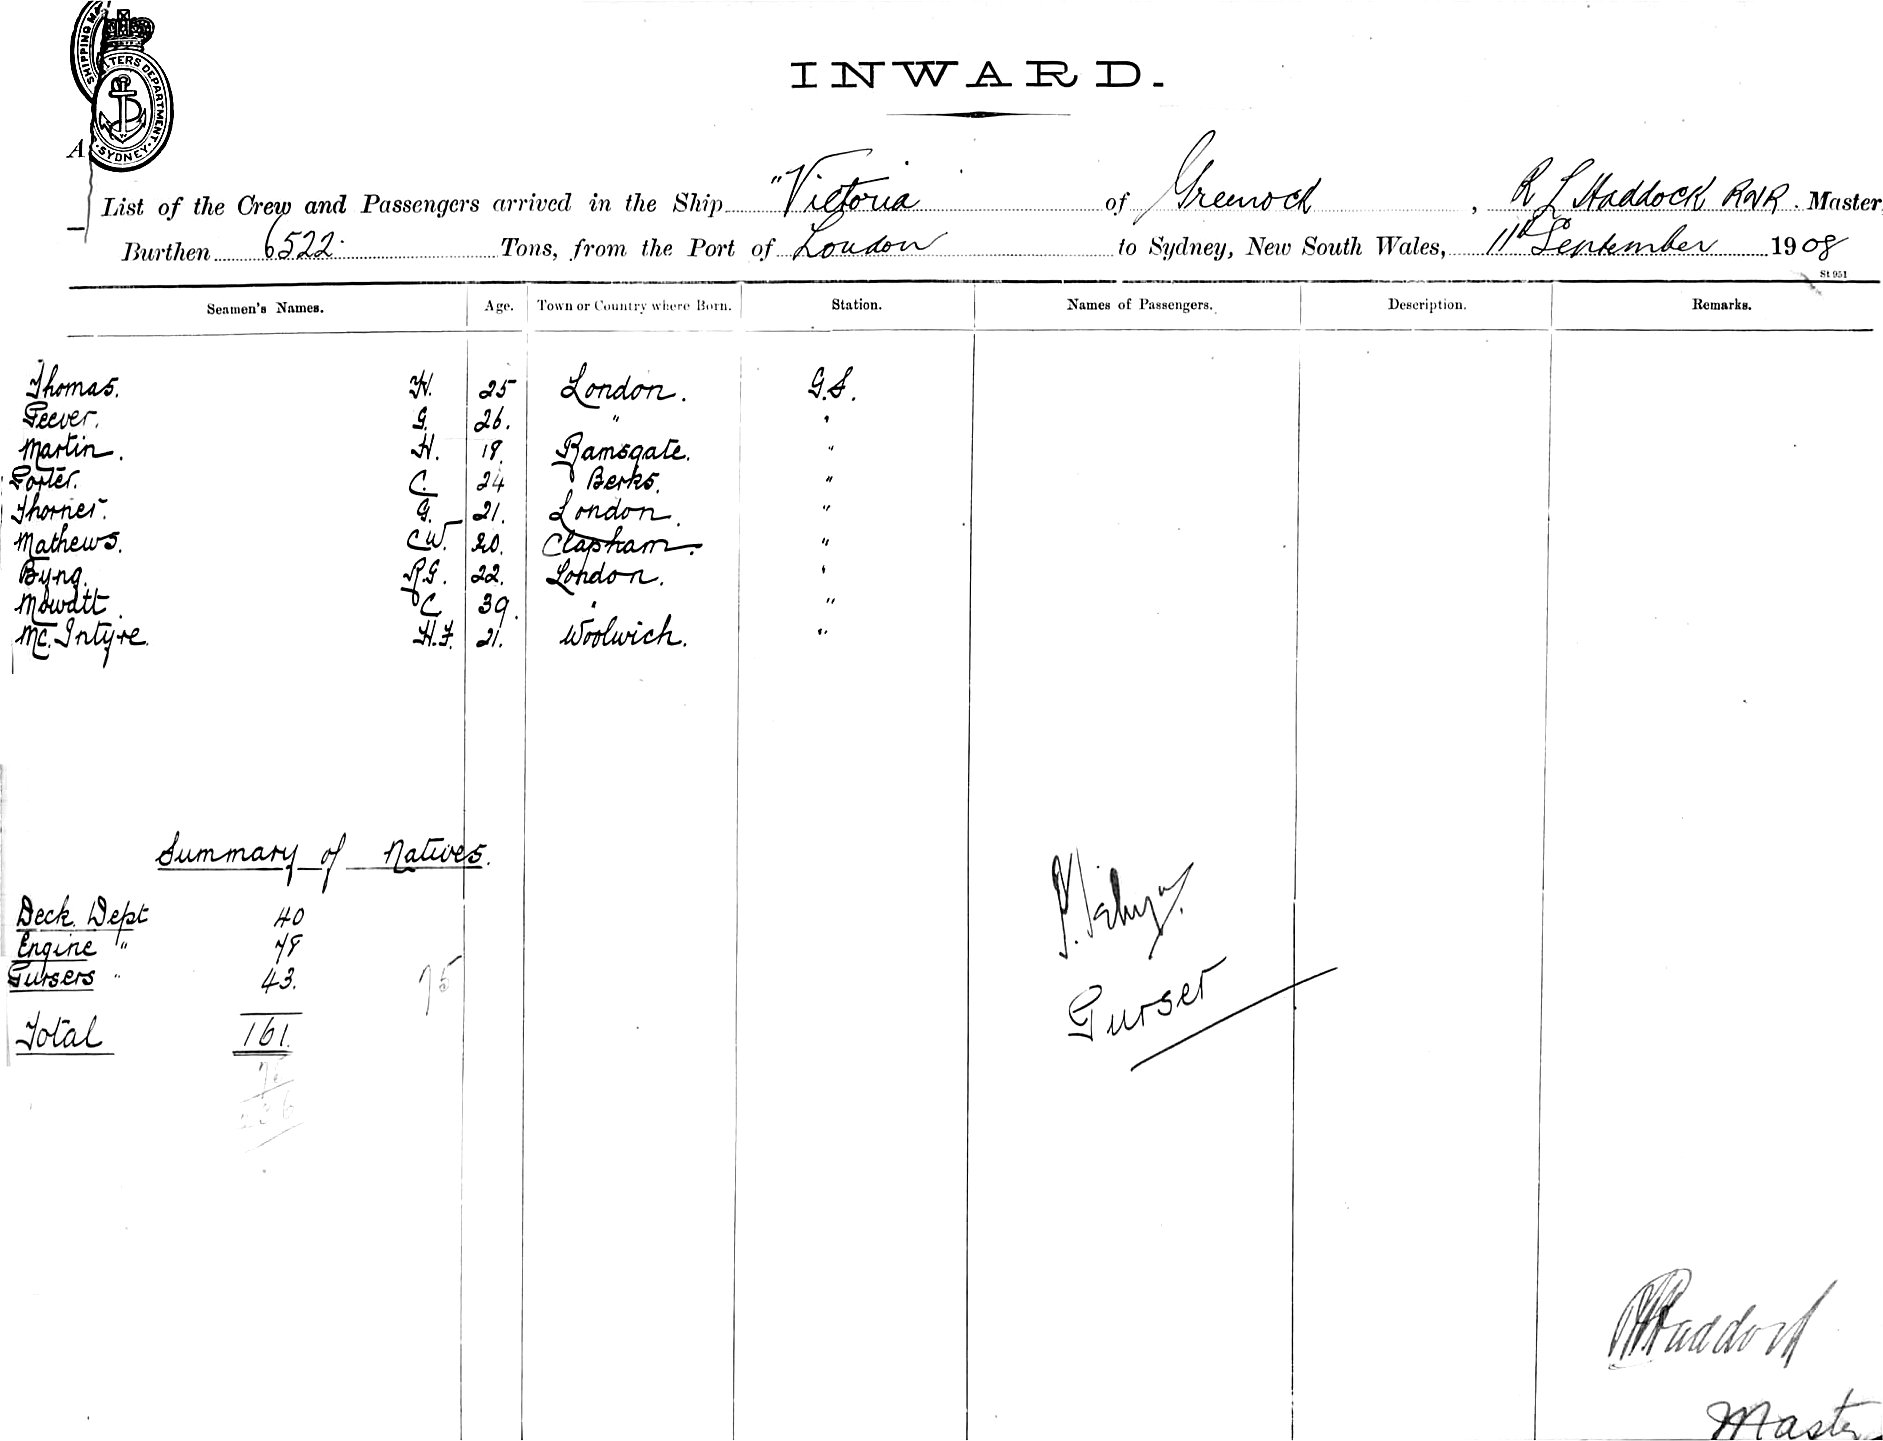 SHIPPING MA
TERS DEPARTMENT
SYDNEY
INWARD.
A
List of the Crew and Passengers arrived in the Ship "Victoria of Greenock, R L Haddock RNR. Master,
Burthen 6522 Tons, from the Port of London to Sydney, New South Wales, 11th September 1908
St 951
Seamen's Names. Age. Town or Country where Born. Station. Names of Passengers. Description. Remarks.
Thomas. H. 25 London. G.S.
Peever. G. 26. " "
Martin. H. 18. Ramsgate. "
Porter. C. 24 Berks. "
Thorner. G. 21. London. "
Mathews. C.W. 20. Clapham. "
Byng. R.G. 22. London. "
Mowatt C 39. " "
Mc. Intyre. H.F. 21. Woolwich. "
Summary of Natives.
Deck. Dept 40
Engine " 78
Pursers " 43.
75
Total 161.
Purser
Haddock
Master